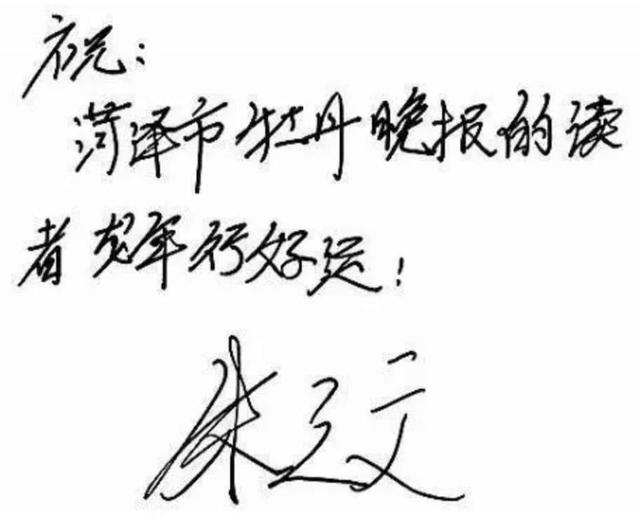 祝：
菏泽市牡丹晚报的读
者龙年行好运！
朱之文